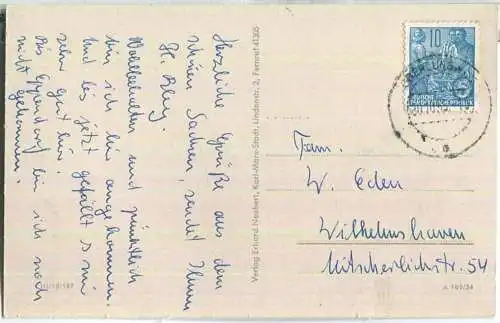 Herzliche Grüße aus dem
schönen Sachsen, sendet Ihnen
H.
Wohlbehalten und pünktlich
bin ich hier angekommen.
Und bis jetzt gefällt s mir
sehr gut hier.
Bis Eppendorf bin ich noch
nicht gekommen.
Verlag Erhard Neubert, Karl-Marx-Stadt, Lindenstr. 2, Fernruf 41305
10
DEUTSCHE
DEMOKRATISCHE REPUBLIK
Fam.
W. Eden
Wilhelmshaven
Mitscherlichstr. 54
III/18/197